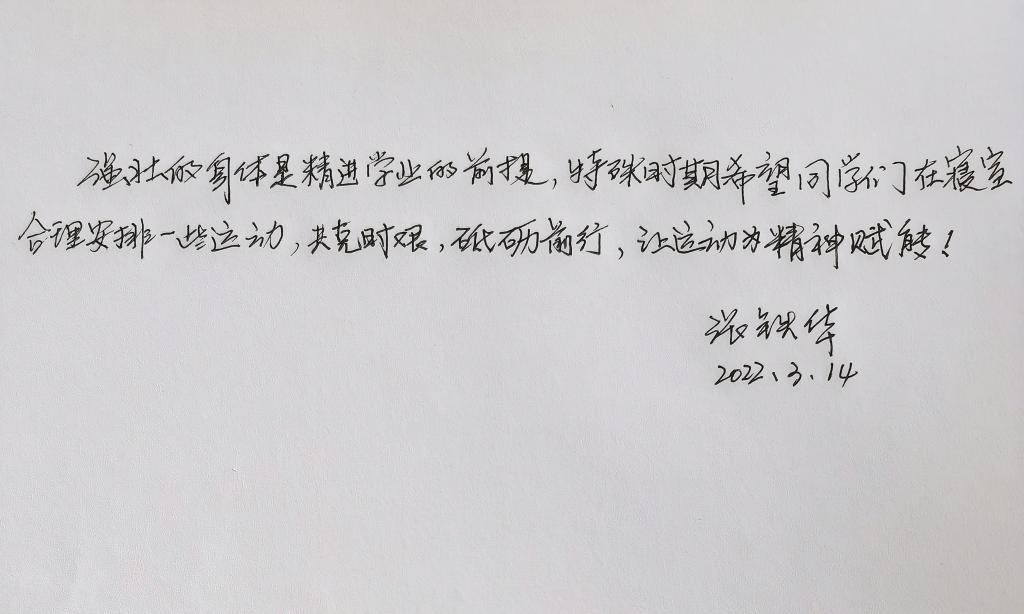 强壮的身体是精进学业的前提,特殊时期希望同学们在寝室
合理安排一些运动,共克时艰,砥砺前行,让运动为精神赋能!
张铁华
2022.3.14